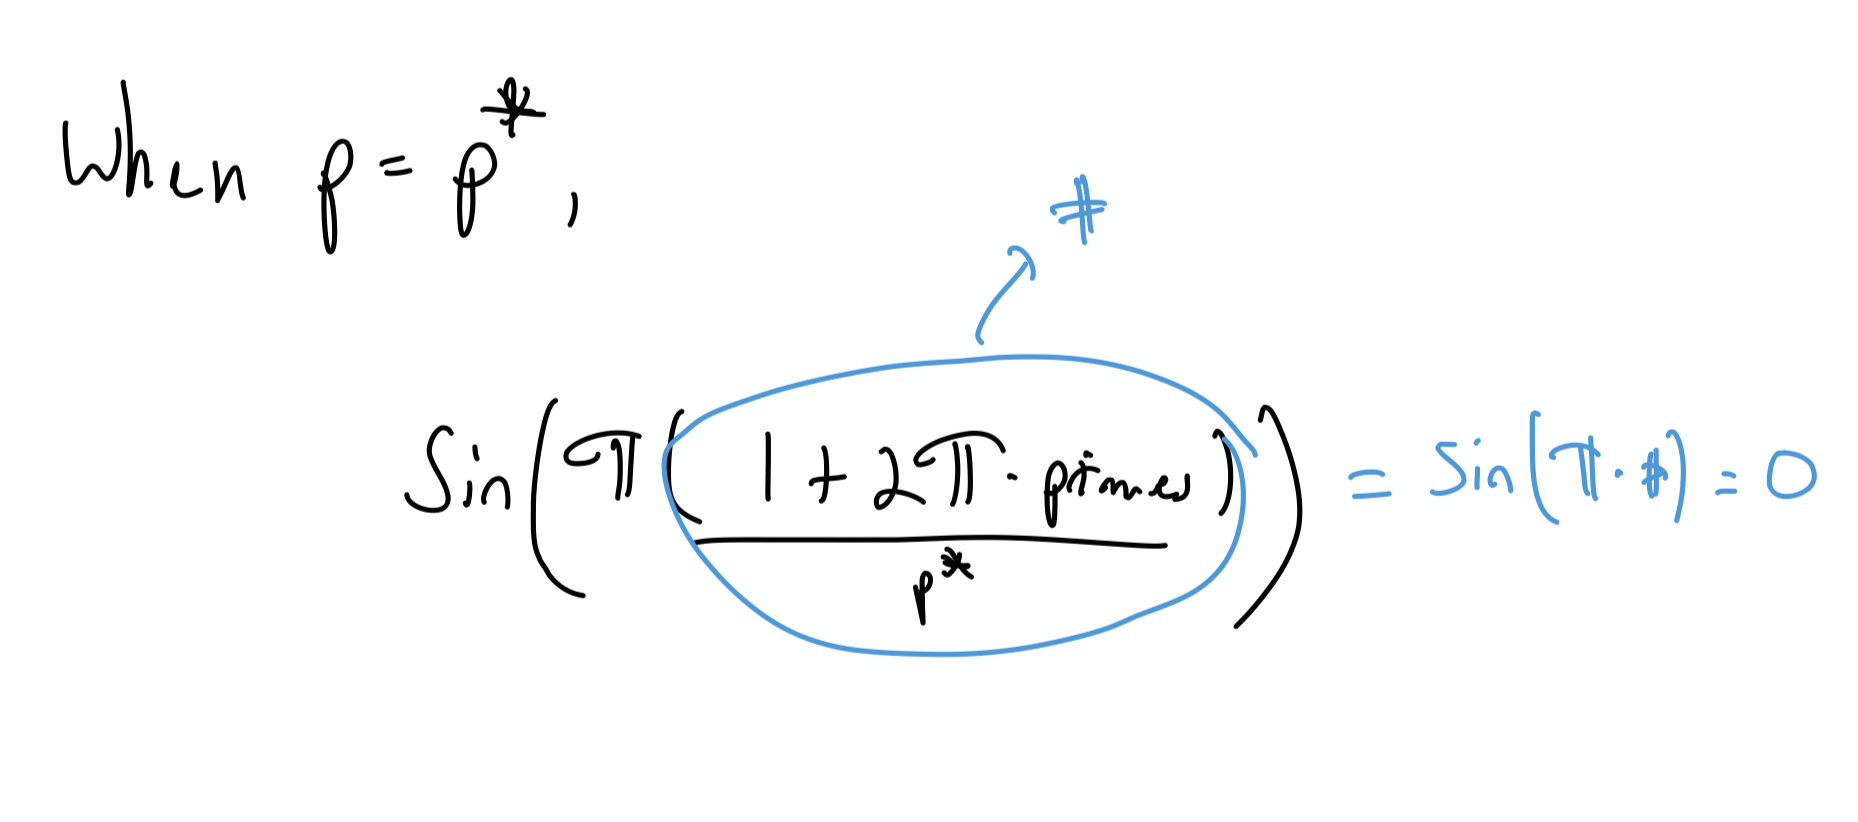 When p = p*,
#
Sin(π(1 + 2π · primes)/p*) = Sin(π · #) = 0